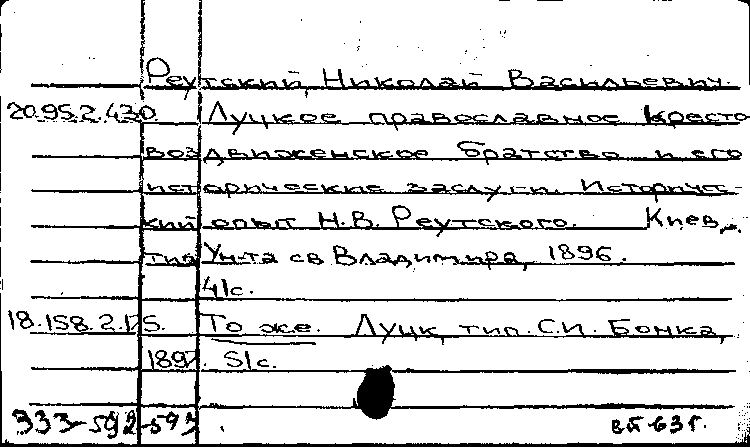 Реутский, Николай Васильевич.
20.95.2.430. Луцкое православное Кресто
воздвиженское братство и его
исторические заслуги. Историчес-
кий опыт Н.В. Реутского. Киев,
тип Ун-та св Владимира, 1896.
41с.
18.158.2.175. То же. Луцк, тип. С.И. Бонка,
1897. 51с.
333-592-593.